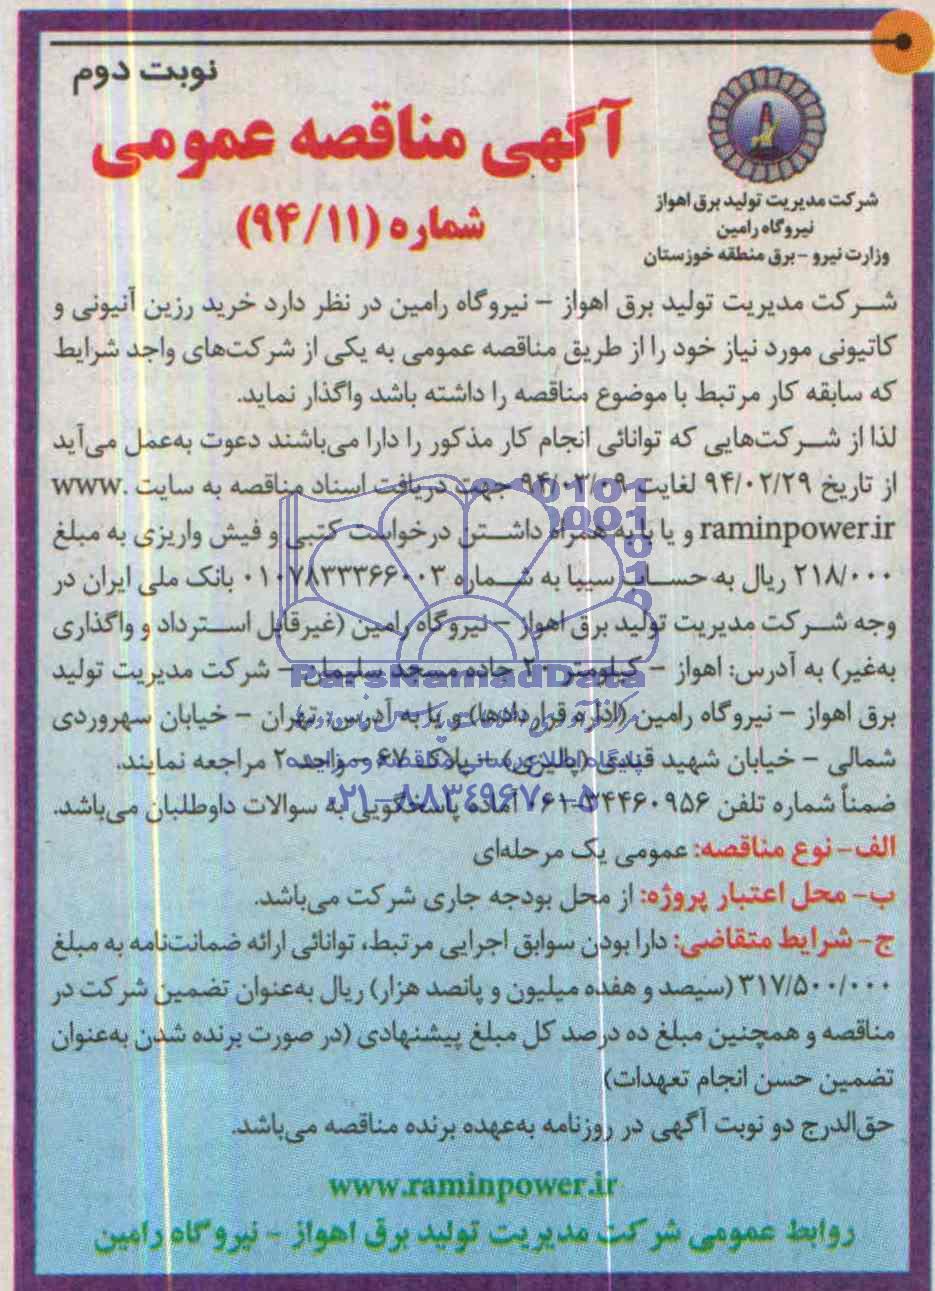 نوبت دوم
آگهی مناقصه عمومی
شماره (۹۴/۱۱)
شرکت مدیریت تولید برق اهواز
نیروگاه رامین
وزارت نیرو - برق منطقه خوزستان
شرکت مدیریت تولید برق اهواز – نیروگاه رامین در نظر دارد خرید رزین آنیونی و
کاتیونی مورد نیاز خود را از طریق مناقصه عمومی به یکی از شرکت‌های واجد شرایط
که سابقه کار مرتبط با موضوع مناقصه را داشته باشد واگذار نماید.
لذا از شرکت‌هایی که توانائی انجام کار مذکور را دارا می‌باشند دعوت به‌عمل می‌آید
از تاریخ ۹۴/۰۲/۲۹ لغایت ۹۴/۰۳/۰۹ جهت دریافت اسناد مناقصه به سایت www.
raminpower.ir و یا با به همراه داشتن درخواست کتبی و فیش واریزی به مبلغ
۲۱۸/۰۰۰ ریال به حساب سیبا به شماره ۰۱۰۷۸۳۳۳۶۶۰۰۳ بانک ملی ایران در
وجه شرکت مدیریت تولید برق اهواز – نیروگاه رامین (غیرقابل استرداد و واگذاری
به‌غیر) به آدرس: اهواز – کیلومتر ۲۰ جاده مسجد سلیمان – شرکت مدیریت تولید
برق اهواز – نیروگاه رامین (اداره قراردادها) و یا به آدرس: تهران – خیابان سهروردی
شمالی – خیابان شهید قندی (پالیزی) – پلاک ۶۷ – واحد ۲ مراجعه نمایند.
ضمناً شماره تلفن ۳۴۴۶۰۹۵۶-۰۶۱ آماده پاسخگویی به سوالات داوطلبان می‌باشد.
ParsNamadData
پایگاه اطلاع رسانی مناقصه و مزایده
۰۲۱-۸۸۳٤۹۶۷۰-۵
الف- نوع مناقصه: عمومی یک مرحله‌ای
ب- محل اعتبار پروژه: از محل بودجه جاری شرکت می‌باشد.
ج- شرایط متقاضی: دارا بودن سوابق اجرایی مرتبط، توانائی ارائه ضمانت‌نامه به مبلغ
۳۱۷/۵۰۰/۰۰۰ (سیصد و هفده میلیون و پانصد هزار) ریال به‌عنوان تضمین شرکت در
مناقصه و همچنین مبلغ ده درصد کل مبلغ پیشنهادی (در صورت برنده شدن به‌عنوان
تضمین حسن انجام تعهدات)
حق‌الدرج دو نوبت آگهی در روزنامه به‌عهده برنده مناقصه می‌باشد.
www.raminpower.ir
روابط عمومی شرکت مدیریت تولید برق اهواز - نیروگاه رامین